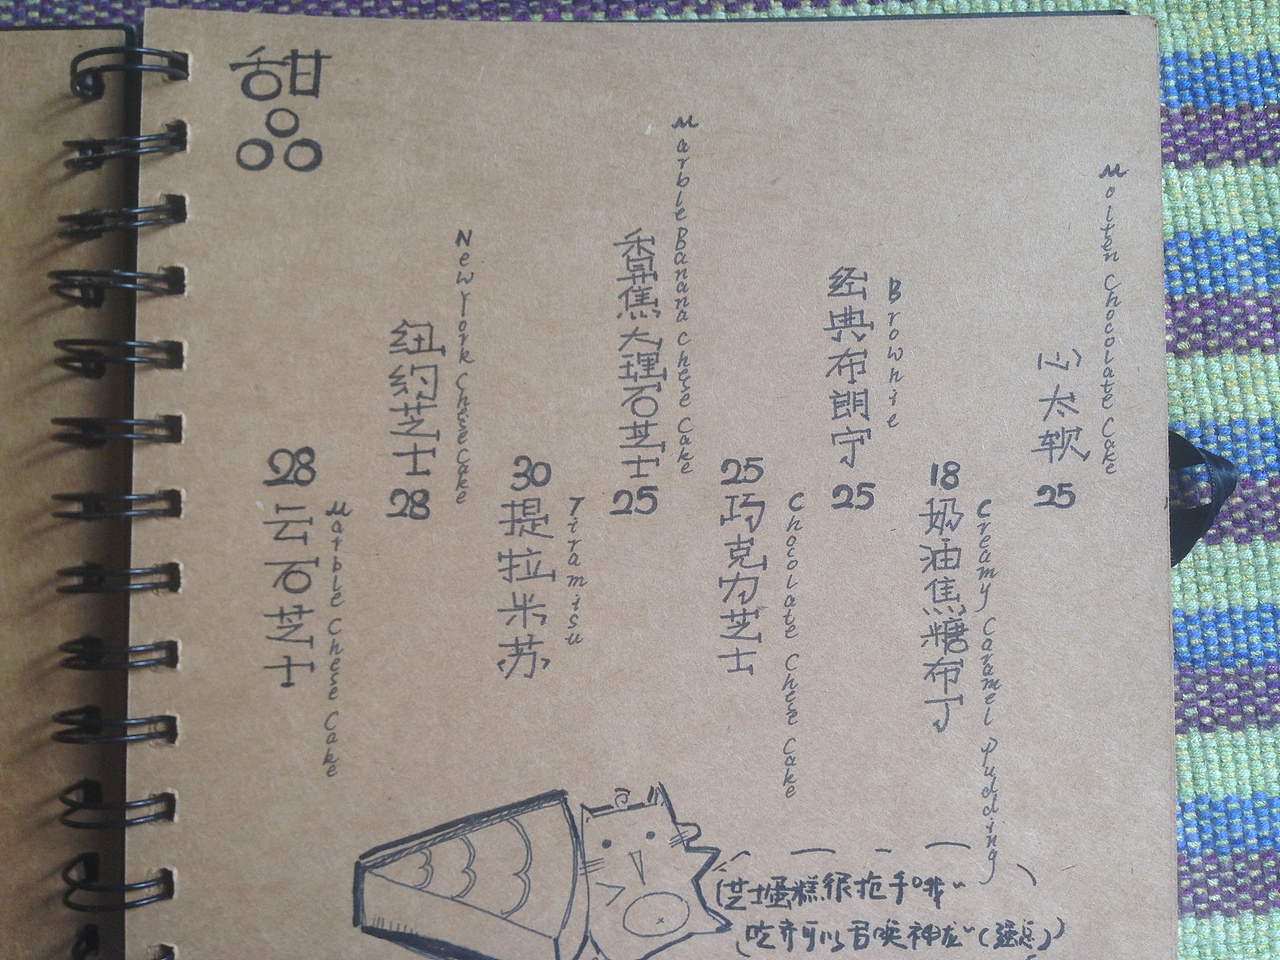 甜品
28
云石芝士
Marble Chese Cake
纽约芝士
28
New York Chese Cake
30
提拉米苏
Tiramisu
香蕉大理石芝士
25
Marble Banana Chese Cake
25
巧克力芝士
Chocolate Chese Cake
经典布朗宁
25
Brownie
18
奶油焦糖布丁
Creamy Caramel Pudding
心太软
25
Molten Chocolate Cake
(芝士蛋糕很抢手哦~
吃齐可以召唤神龙~(